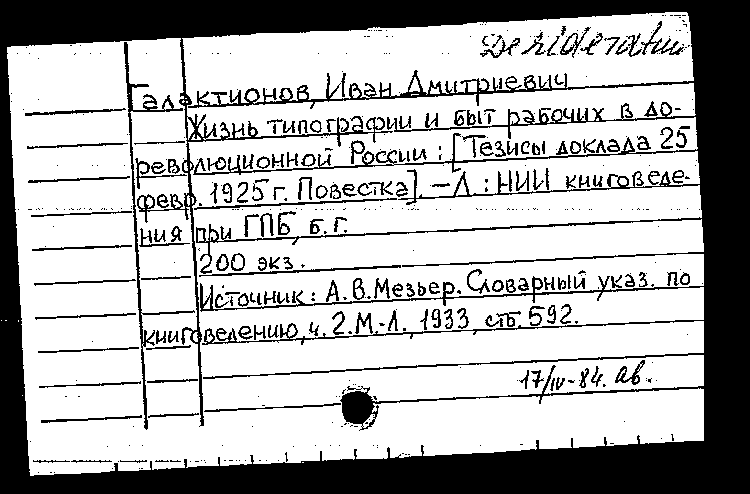 Dezideratum
Галактионов, Иван Дмитриевич
Жизнь типографии и быт рабочих в до-
революционной России : [Тезисы доклада 25
февр. 1925 г. Повестка]. — Л : НИИ книговеде-
ния при ГПБ, б. г.
200 экз.
Источник : А. В. Мезьер. Словарный указ. по
книговедению, ч. 2. М.-Л., 1933, стб. 592.
17/IV-84. ав.